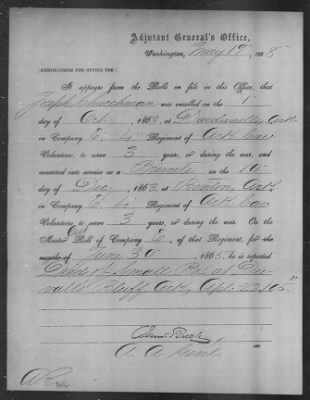 Adjutant General's Office,
Washington, May 19, 1868
[MEMORANDUM FOR OFFICE USE.]
It appears from the Rolls on file in this Office, that
Joseph Churchman was enrolled on the 1"
day of Oct, 1863, at Dardanelle, Ark
in Company E, 4" Regiment of Ark Cav
Volunteers, to serve 3 years, or during the war, and
mustered into service as a Private on the 10
day of Dec, 1863, at Benton, Ark,
in Company E, 4" Regiment of Ark Cav
Volunteers, to serve 3 years, or during the war. On the
Muster Out Roll of Company E, of that Regiment, for the
months of June 30, 1865, he is reported
Died of Small Pox at Du-
valls Bluff Ark, Apr. 22/65"
A. A. Genl.